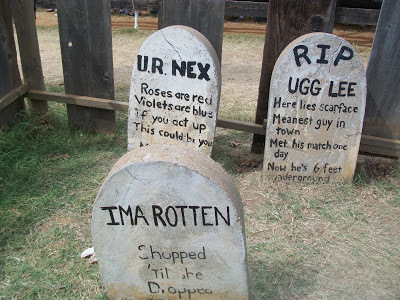 U.R. NEX
Roses are red
Violets are blue
if you act up
This could be you
RIP
UGG LEE
Here lies scarface
Meanest guy in
town
Met his match one
day
Now he's 6 feet
underground
IMA ROTTEN
Shopped
'Til she
Dropped